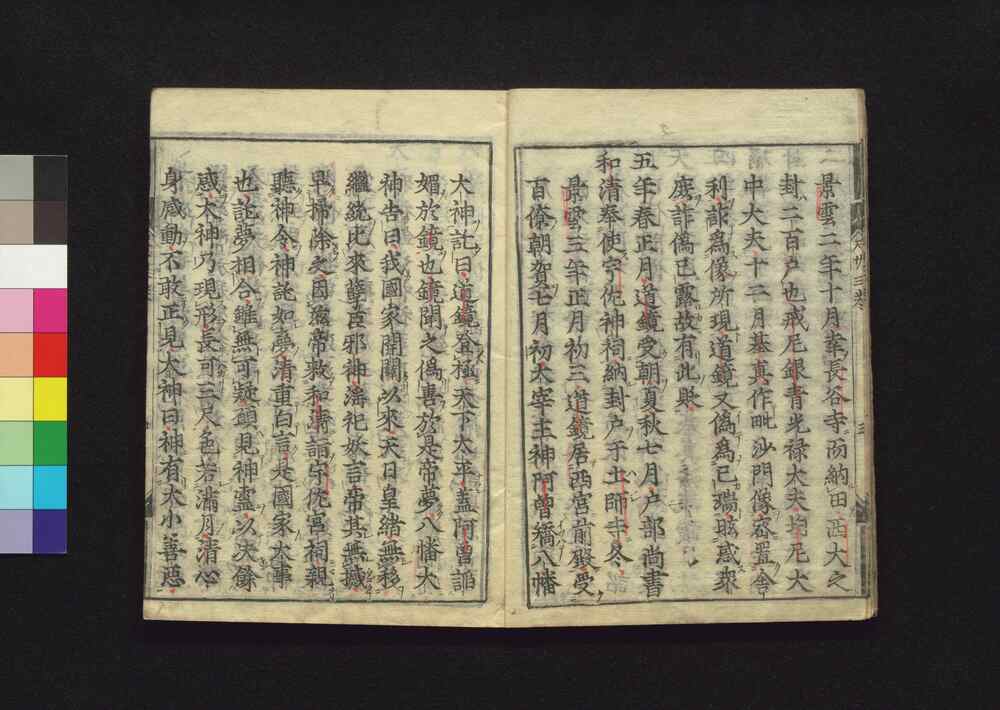 二景雲二年十月幸長谷寺而納田酉大之
封二百戸也戒尼銀青光禄大夫均尼大
中大夫十二月基真作毗沙門像密置舎
利詐為像所現道鏡又偽為已瑞眩惑衆
庶詐偽已露故有此貶
五年春正月道鏡受朝夏秋七月戸部尚書
和清奉使宇佐神祠納封戸于土師寺冬
景雲三年正月初三道鏡居西宮前殿受
百僚朝賀七月初太宰主神阿曽矯八幡
大神託曰道鏡登極天下太平蓋阿曽諂
媚於鏡也鏡聞之為喜於是帝夢八幡大
神告曰我國家開闢以來天日皇緒無移
繼統比來孽臣邪神濤祀妖言帝其無撼
早掃除之因茲帝敕和清詣宇佐宮祠親
聽神令神託如夢清重白言是國家大事
也託夢相合雖無可疑願見神靈以決餘
惑大神乃現形長可三尺色若滿月清心
身感動不敢正見大神曰神有大小善惡